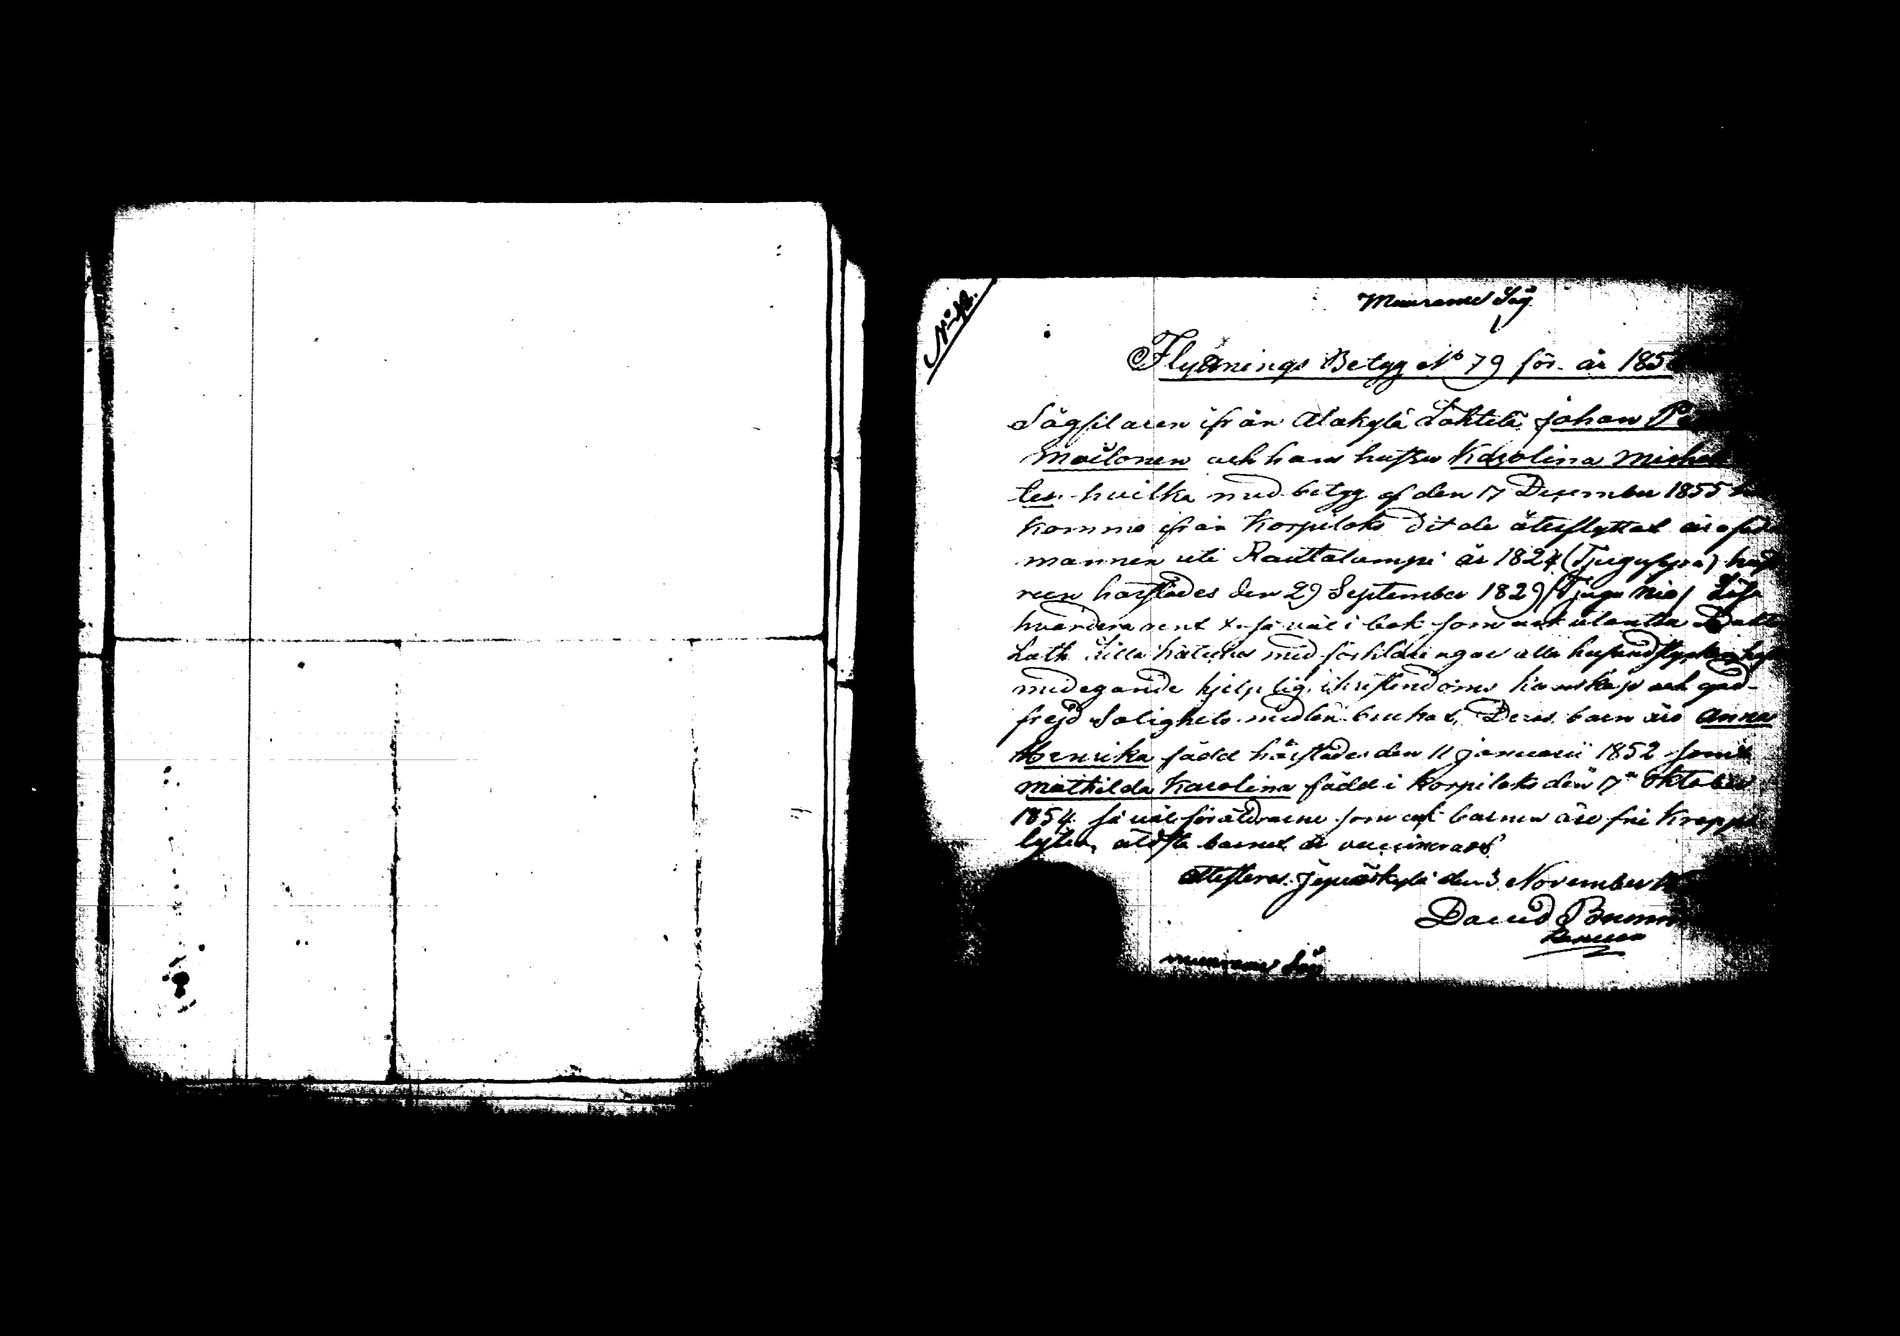 Muurame Såg
Flyttnings Betyg No 79 för år 185
Sågfilaren ifrån Alakylä Lahtela Johan
Moilonen och hans hustru Karolina Michels
ter. hvilka med betyg af den 17 Desember 1855
komme ifrån Korpilaks dit de återflyttat äro
mannen uti Rautalampi år 1824 (Tjugufyra)
reen härstädes den 29 September 1829 (Tjugu Nio) Läsa
hvardera rent så väl i bok som utantill
Luth Lilla med förklaringar alla
medegande hjelplig christendoms kunskap och god
frejd Salighets medlen brukat, Deras barn äro Anna
Henrika född härstädes den 11 Januarii 1852 samt
Mathilda Karolina född i Korpilaks den 7 Oktober
1854. så väl föräldrarne som ock barnen äro fri Kropps
lyten, äldsta barnet är vaccineradt
Attesteras. Jyväskylä den 3 November
David
Muurame Såg